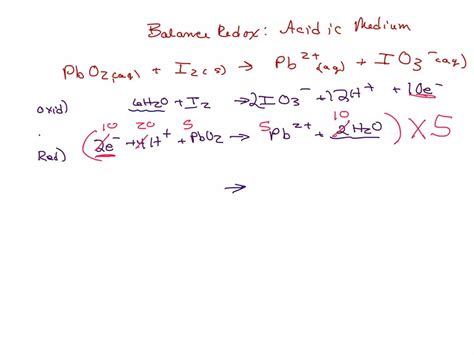 Balance Redox: Acidic Medium
PbO2(aq) + I2(s) → Pb2+(aq) + IO3-(aq)
oxid) 6H2O + I2 → 2IO3- + 12H+ + 10e-
10 20 5 5 10
Red) (2e- + 4H+ + PbO2 → Pb2+ + 2H2O) X5
→